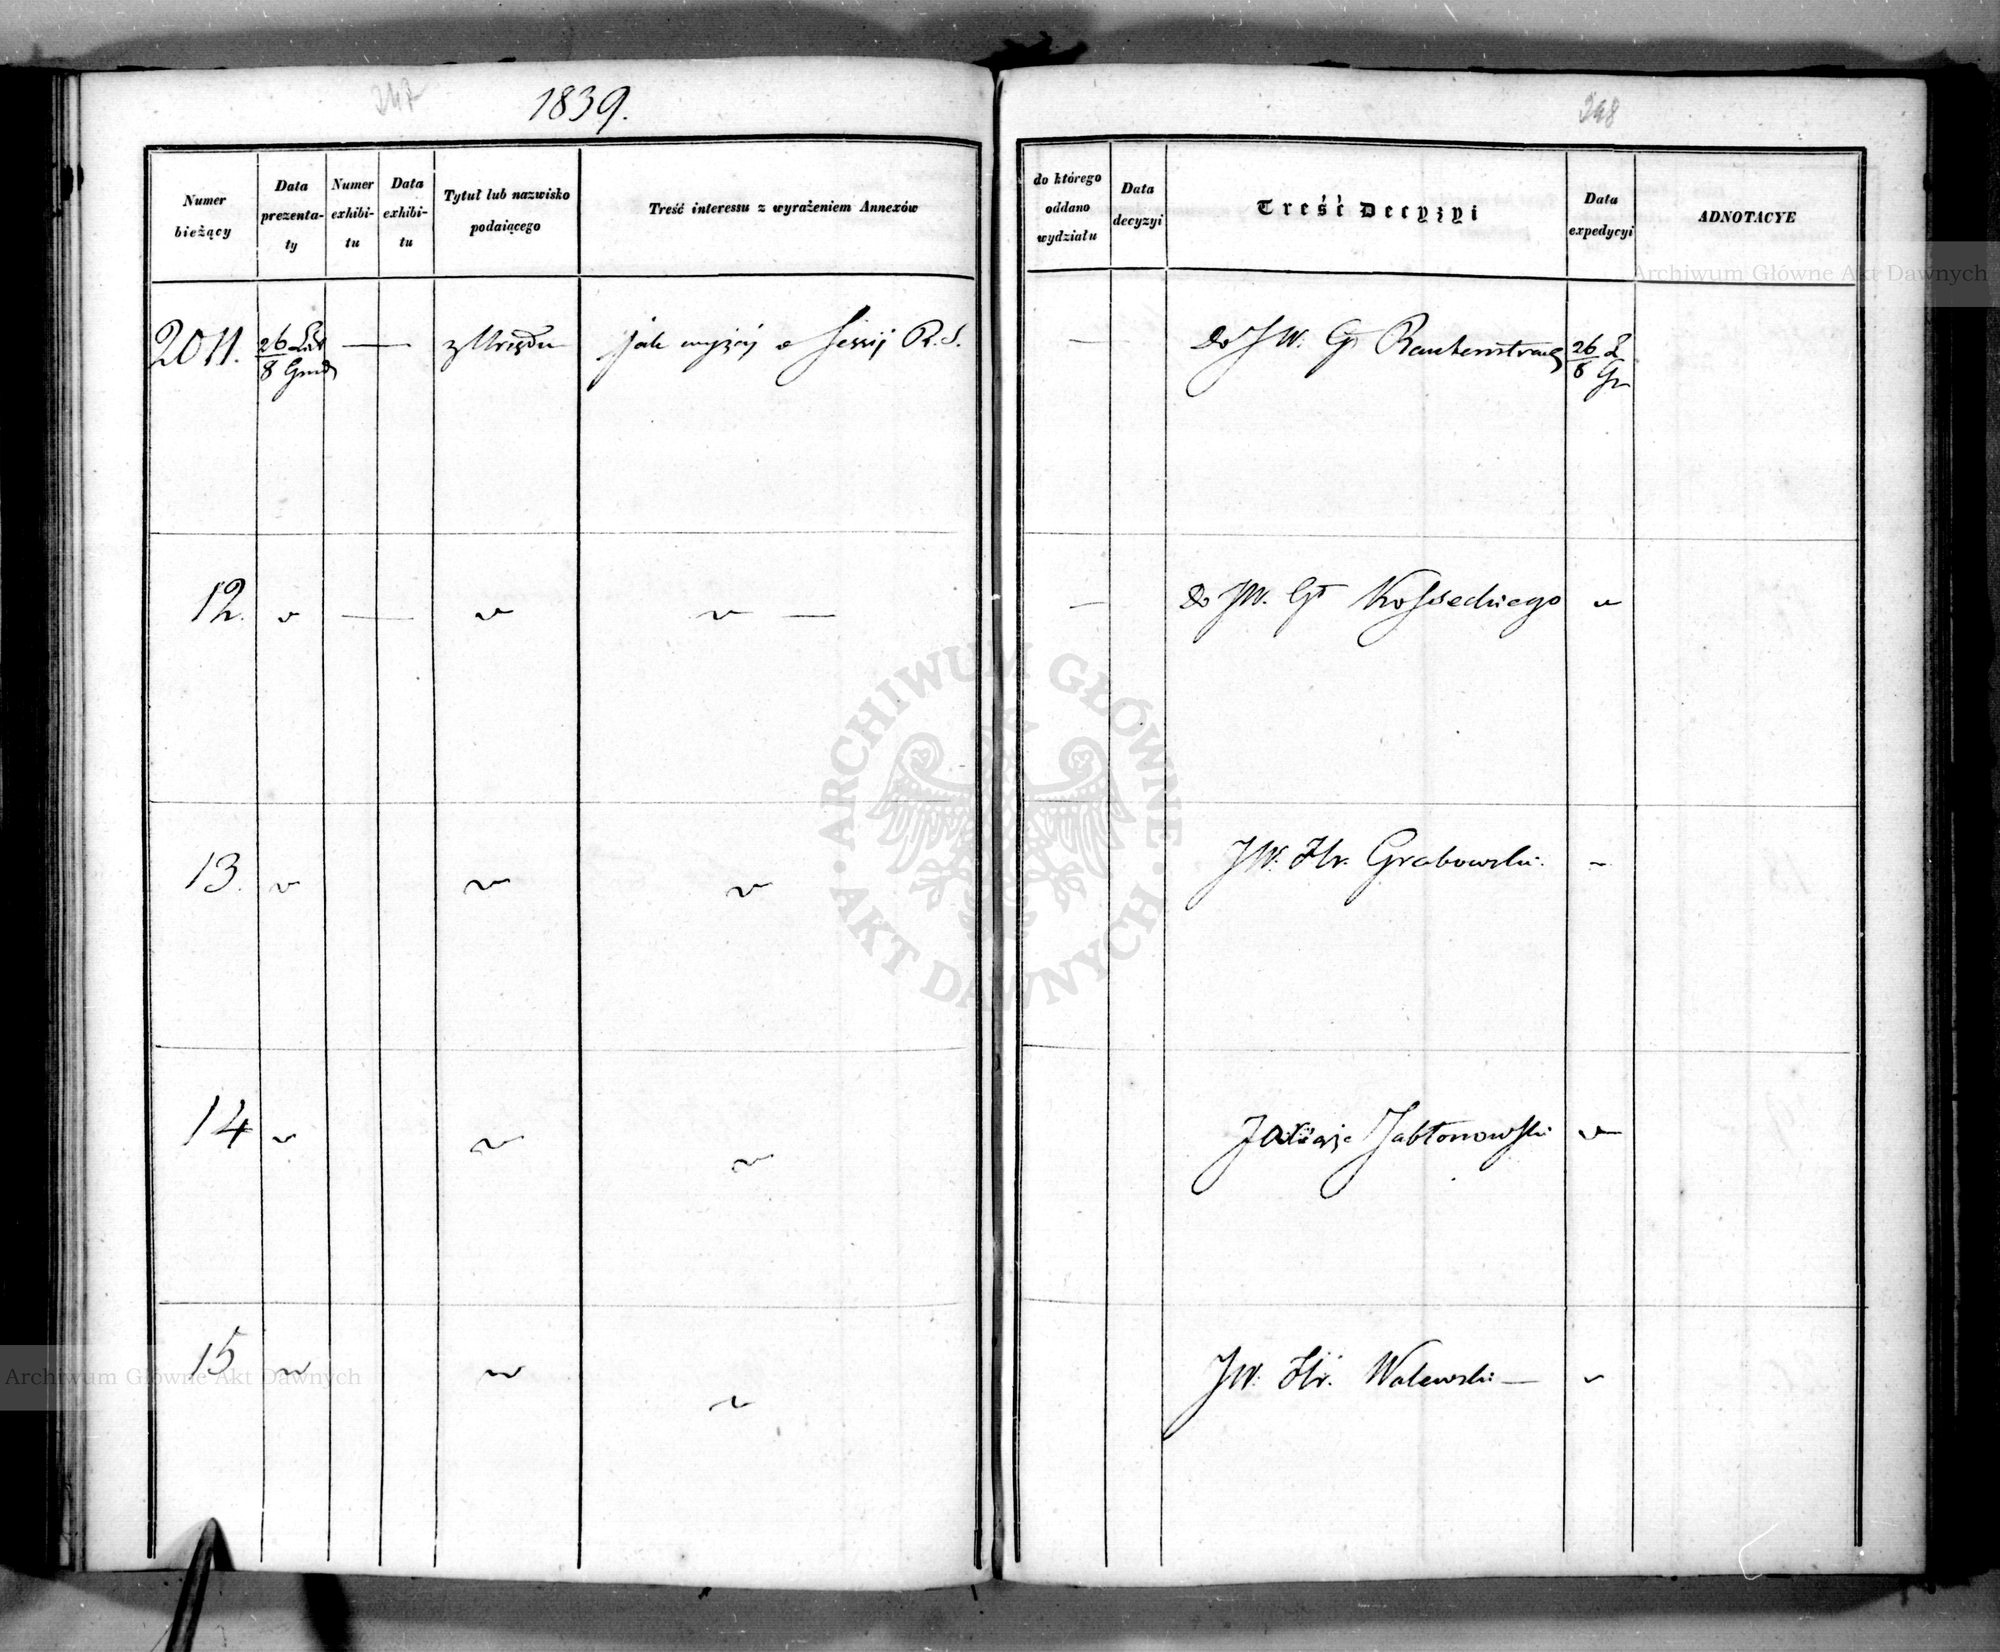 247
1839.
Numer
bieżący
Data
prezenta-
ty
Numer
exhibi-
tu
Data
exhibi-
tu
Tytuł lub nazwisko
podaiącego
Treść interessu z wyrażeniem Annexów
2011.
26 List
8 Grud
z Urzędu
jak wyżej o Sessij R. S.
12.
13.
14
15
248
do którego
oddano
wydziału
Data
decyzyi
Treść Decyzyi
Data
expedycyi
ADNOTACYE
Do JW. Gł Rautenstrauch
26 L
8 Gr
Do JW. Gł Kosseckiego
JW. Hr. Grabowski.
Jabłonowski
JW. Hr. Walewski
Archiwum Główne Akt Dawnych
ARCHIWUM GŁÓWNE · AKT DAWNYCH ·
Archiwum Główne Akt Dawnych